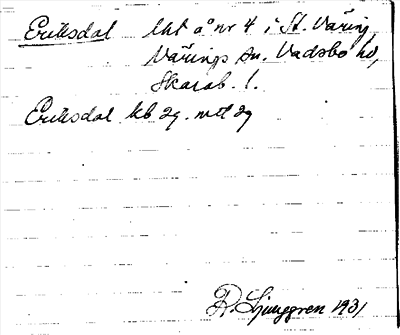 Eriksdal lht å nr 4 i St. Väring
Värings sn. Vadsbo hd,
Skarab. l.
Eriksdal kb 29. mtl 29
R. Ljunggren 1931